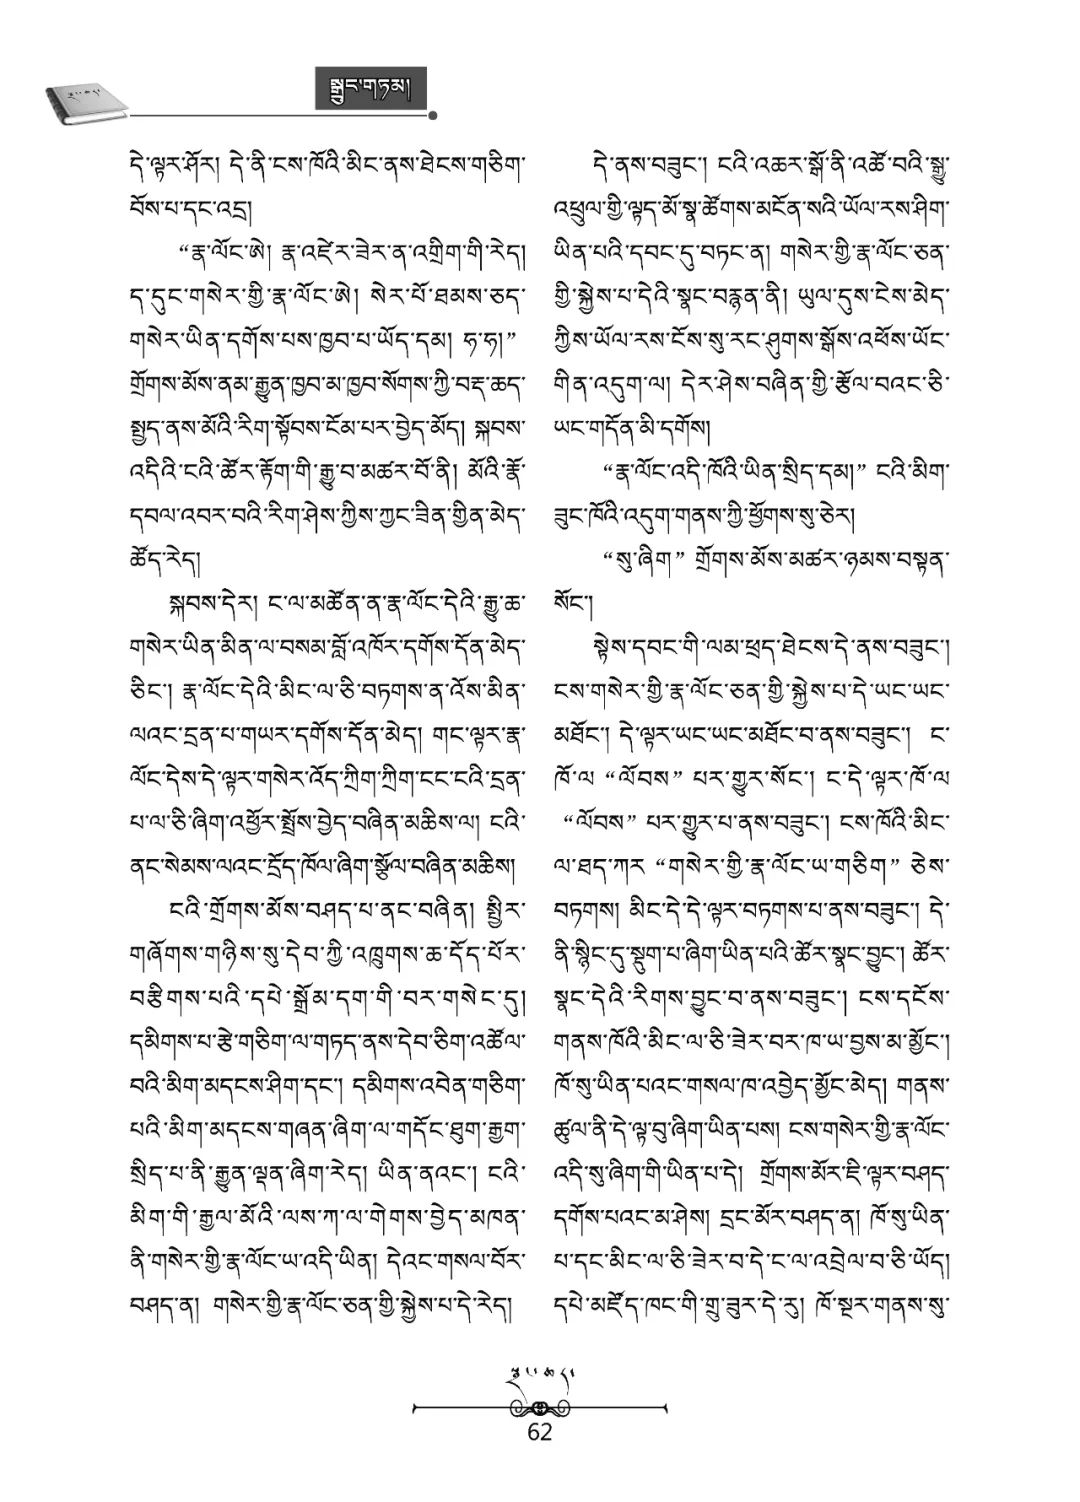 སྒྲུང་གཏམ།
དེ་ལྟར་ཤོར། དེ་ནི་ངས་ཁོའི་མིང་ནས་ཐེངས་གཅིག་
བོས་པ་དང་འདྲ།
“རྣ་ལོང་ཨེ། རྣ་འཛེར་ཟེར་ན་འགྲིག་གི་རེད།
ད་དུང་གསེར་གྱི་རྣ་ལོང་ཨེ། སེར་པོ་ཐམས་ཅད་
གསེར་ཡིན་དགོས་པས་ཁྱབ་པ་ཡོད་དམ། ཧ་ཧ།”
གྲོགས་མོས་ནམ་རྒྱུན་ཁྱབ་མ་ཁྱབ་སོགས་ཀྱི་བརྡ་ཆད་
སྤྱད་ནས་མོའི་རིག་སྟོབས་ངོམ་པར་བྱེད་མོད། སྐབས་
འདིའི་ངའི་ཚོར་རྟོག་གི་རྒྱུ་བ་མཚར་བོ་ནི། མོའི་རྣོ་
དབལ་འབར་བའི་རིག་ཤེས་ཀྱིས་ཀྱང་ཟིན་གྱིན་མེད་
ཚོད་རེད།
སྐབས་དེར། ང་ལ་མཚོན་ན་རྣ་ལོང་དེའི་རྒྱུ་ཆ་
གསེར་ཡིན་མིན་ལ་བསམ་བློ་འཁོར་དགོས་དོན་མེད་
ཅིང་། རྣ་ལོང་དེའི་མིང་ལ་ཅི་བཏགས་ན་འོས་མིན་
ལའང་དྲན་པ་གཡར་དགོས་དོན་མེད། གང་ལྟར་རྣ་
ལོང་དེས་དེ་ལྟར་གསེར་འོད་ཀྲིག་ཀྲིག་ངང་ངའི་དྲན་
པ་ལ་ཅི་ཞིག་འཕྱོར་སྤྲོས་བྱེད་བཞིན་མཆིས་ལ། ངའི་
ནང་སེམས་ལའང་དྲོད་ཁོལ་ཞིག་སྩོལ་བཞིན་མཆིས།
ངའི་གྲོགས་མོས་བཤད་པ་ནང་བཞིན། སྤྱིར་
གཞོགས་གཉིས་སུ་དེབ་ཀྱི་འཁྲུགས་ཆ་དོད་པོར་
བརྩིགས་པའི་དཔེ་སྒྲོམ་དག་གི་བར་གསེང་དུ།
དམིགས་པ་རྩེ་གཅིག་ལ་གཏད་ནས་དེབ་ཅིག་འཚོལ་
བའི་མིག་མདངས་ཤིག་དང་། དམིགས་འབེན་གཅིག་
པའི་མིག་མདངས་གཞན་ཞིག་ལ་གདོང་ཐུག་རྒྱག་
སྲིད་པ་ནི་རྒྱུན་ལྡན་ཞིག་རེད། ཡིན་ནའང་། ངའི་
མིག་གི་རྒྱལ་མོའི་ལས་ཀ་ལ་གེགས་བྱེད་མཁན་
ནི་གསེར་གྱི་རྣ་ལོང་ཡ་འདི་ཡིན། དེའང་གསལ་བོར་
བཤད་ན། གསེར་གྱི་རྣ་ལོང་ཅན་གྱི་སྐྱེས་པ་དེ་རེད།
དེ་ནས་བཟུང་། ངའི་འཆར་སྒོ་ནི་འཚོ་བའི་སྒྱུ་
འཕྲུལ་གྱི་ལྟད་མོ་སྣ་ཚོགས་མངོན་སའི་ཡོལ་རས་ཤིག་
ཡིན་པའི་དབང་དུ་བཏང་ན། གསེར་གྱི་རྣ་ལོང་ཅན་
གྱི་སྐྱེས་པ་དེའི་སྣང་བརྙན་ནི། ཡུལ་དུས་ངེས་མེད་
ཀྱིས་ཡོལ་རས་ངོས་སུ་རང་ཤུགས་སྒོས་འཕོས་ཡོང་
གིན་འདུག་ལ། དེར་ཤེས་བཞིན་གྱི་རྩོལ་བའང་ཅི་
ཡང་གདོན་མི་དགོས།
“རྣ་ལོང་འདི་ཁོའི་ཡིན་སྲིད་དམ།” ངའི་མིག་
ཟུང་ཁོའི་འདུག་གནས་ཀྱི་ཕྱོགས་སུ་ཅེར།
“སུ་ཞིག” གྲོགས་མོས་མཚར་ཉམས་བསྟན་
སོང་།
སྟེས་དབང་གི་ལམ་ཕྲད་ཐེངས་དེ་ནས་བཟུང་།
ངས་གསེར་གྱི་རྣ་ལོང་ཅན་གྱི་སྐྱེས་པ་དེ་ཡང་ཡང་
མཐོང་། དེ་ལྟར་ཡང་ཡང་མཐོང་བ་ནས་བཟུང་། ང་
ཁོ་ལ “ལོབས” པར་གྱུར་སོང་། ང་དེ་ལྟར་ཁོ་ལ
“ལོབས” པར་གྱུར་པ་ནས་བཟུང་། ངས་ཁོའི་མིང་
ལ་ཐད་ཀར “གསེར་གྱི་རྣ་ལོང་ཡ་གཅིག” ཅེས་
བཏགས། མིང་དེ་དེ་ལྟར་བཏགས་པ་ནས་བཟུང་། དེ་
ནི་སྙིང་དུ་སྡུག་པ་ཞིག་ཡིན་པའི་ཚོར་སྣང་བྱུང་། ཚོར་
སྣང་དེའི་རིགས་བྱུང་བ་ནས་བཟུང་། ངས་དངོས་
གནས་ཁོའི་མིང་ལ་ཅི་ཟེར་བར་ཁ་ཡ་བྱས་མ་མྱོང་།
ཁོ་སུ་ཡིན་པའང་གསལ་ཁ་འབྱེད་མྱོང་མེད། གནས་
ཚུལ་ནི་དེ་ལྟ་བུ་ཞིག་ཡིན་པས། ངས་གསེར་གྱི་རྣ་ལོང་
འདི་སུ་ཞིག་གི་ཡིན་པ་དེ། གྲོགས་མོར་ཇི་ལྟར་བཤད་
དགོས་པའང་མ་ཤེས། དྲང་མོར་བཤད་ན། ཁོ་སུ་ཡིན་
པ་དང་མིང་ལ་ཅི་ཟེར་བ་དེ་ང་ལ་འབྲེལ་བ་ཅི་ཡོད།
དཔེ་མཛོད་ཁང་གི་གྲུ་ཟུར་དེ་རུ། ཁོ་སྔར་གནས་སུ་
62